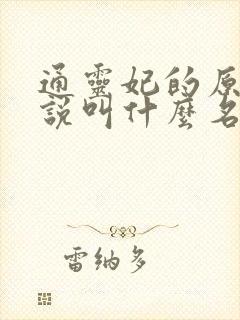 通靈妃的原
說叫什麼名
雷納多